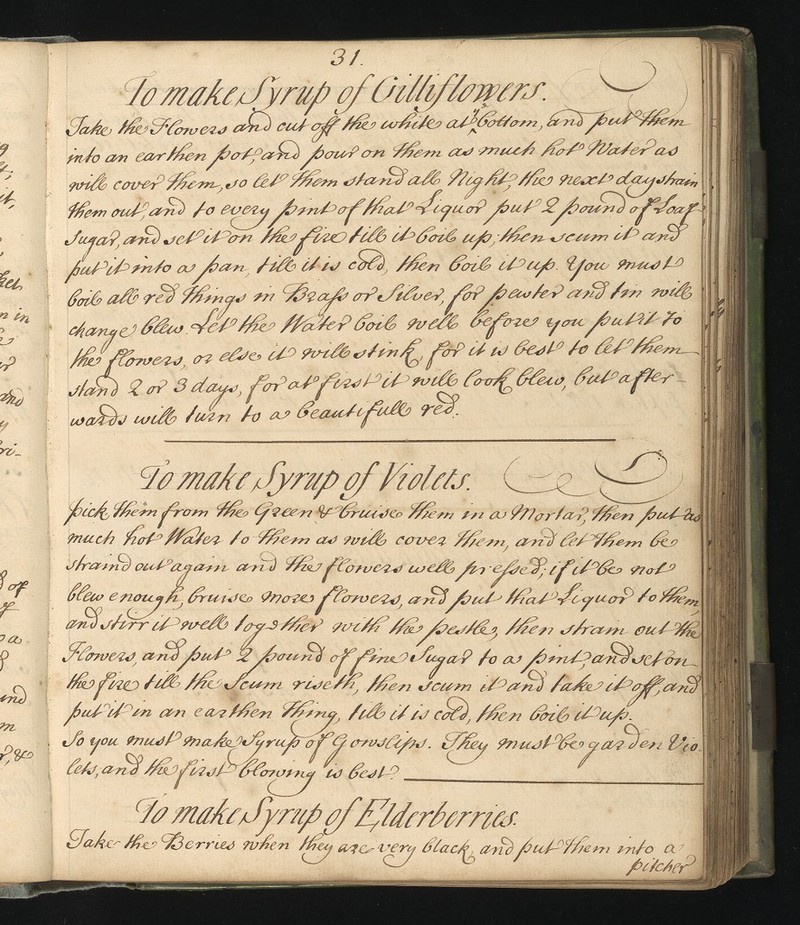 31.
To make Syrup of Gilliflowers.
Take the Flowers and cut off the white at yᵉ bottom, and put them
into an earthen pot, and pour on them as much hot Water as
will cover them, so let them stand all Night, the next day strain
them out, and to every pint of that Liquor put 2 pound of Loaf
Sugar, and set it on the fire till it boil up, then scum it and
put it into a pan, till it is cold, then boil it up. You must
boil all red things in Braſs or Silver, for pewter and tin will
change blew. Let the Water boil well before you put it to
the flowers, or else it will stink, for it is best to let them
stand 2 or 3 days, for at first it will look blew, but after-
wards will turn to a beautifull red.
To make Syrup of Violets.
pick them from the Green & bruise them in a Mortar, then put as
much hot Water to them as will cover them, and let them be
straind out again and the flowers well pressed; if it be not
blew enough, bruise more flowers, and put that Liquor to them,
and stirr it well together with the pestle, then strain out the
Flowers, and put 2 pound of fine Sugar to a pint, and set on
the fire till the Scum riseth, then scum it and take it off, and
put it in an earthen thing, till it is cold, then boil it up.
So you must make Syrup of Gowslips. They must be garden Vio-
lets, and the first blowing is best.
To make Syrup of Elderberries.
Take the Berries when they are very black, and put them into a
pitcher